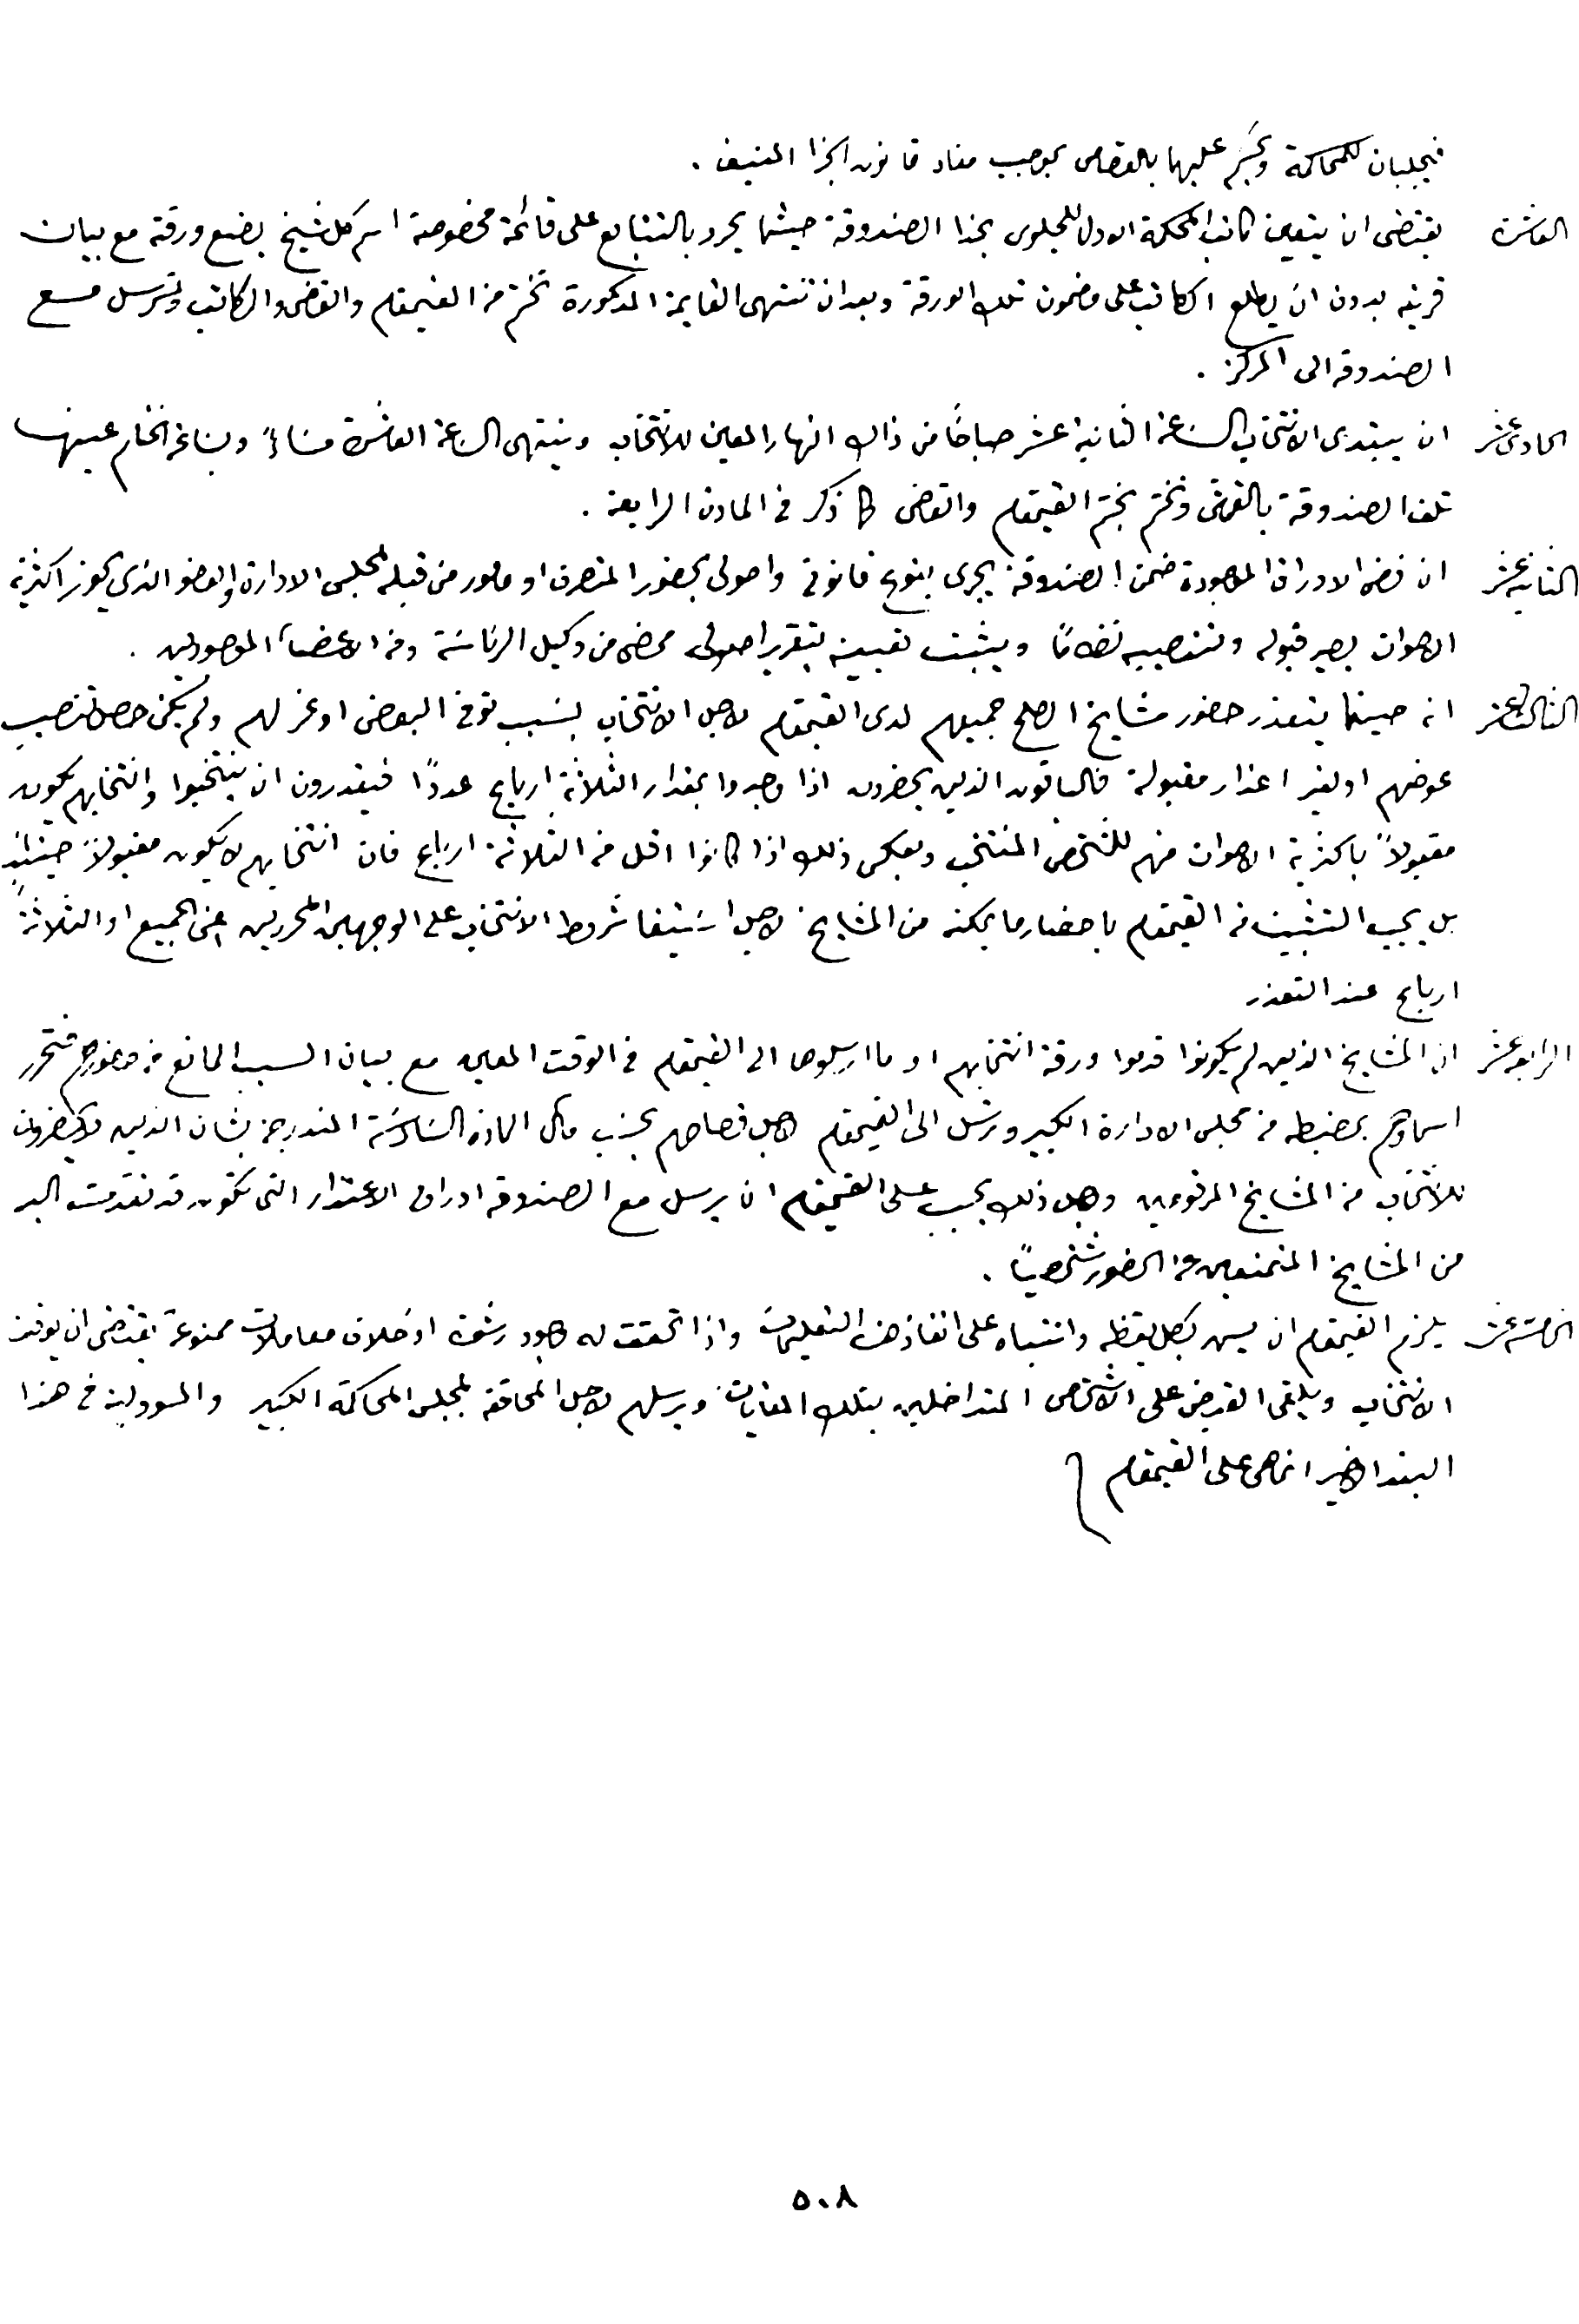 فيجلبان للمحاكمة ويحكم عليهما بالقصاص بموجب مفاد قانون الجزا المنيف .
العاشرة يقتضى ان يتعين كاتب المحكمة الاول للجلوس بحذا الصندوقة حيثما يحرر بالتتابع على قائمة مخصوصة اسم كل شيخ يضع ورقة مع بيان
قريته بدون ان يطلع الكاتب على مضمون تلك الورقة وبعد ان تنتهى القايمة المذكورة تختم من القيمقام والقاضى والكاتب وترسل مع
الصندوقة الى المركز .
الحادي عشر ان يبتدى الانتخاب الساعة الثانية عشر صباحًا من ذاك النهار المعين للانتخاب وينتهى الساعة العاشرة مساءً وبساعة الختام عينها
تلف الصندوقة بالقماش وتختم بختم القيمقام والقاضى كما ذكر في المادة الرابعة .
الثانية عشر ان فض الاوراق الموجودة ضمن الصندوقة يجرى بنوع قانونى واصولى بحضور المتصرف او مامور من قبله بمجلس الادارة والعضو الذي يحوز اكثرية
الاصوات يصير قبوله وتنصيبه نظامًا ويثبت تعيينه بتقرير اصولى ممضى من وكيل الرئاسة ومن الاعضاء الموجودين .
الثالثة عشر انه حينما يتعذر حضور مشايخ الصلح جميعهم لدى القيمقام لاجل الانتخاب بسبب توفى البعض او عزلهم ولم يكن حصل تنصيب
عوضهم او لغير اعذار مقبولة فالباقون الذين يحضرون اذا وجدوا بمقدار الثلاثة ارباع عددًا فيقدرون ان ينتخبوا وانتخابهم يكون
مقبولاً باكثرية الاصوات منهم للشخص المنتخب وبعكس ذلك اذا كانوا اقل من الثلاثة ارباع فان انتخابهم لا يكون مقبولاً حينئذٍ
بل يجب التشبث من القيمقام باحضار ما يمكنه من المشايخ لاجل استيفا شروط الانتخاب على الوجهين المحررين اعنى الجميع او الثلاثة
ارباع عند التعذر
الرابعة عشر ان المشايخ الذين لم يكونوا قدموا ورقة انتخابهم او ما ارسلوها الى القيمقام فى الوقت المعين مع بيان السبب المانع من حضورهم فتحرر
اسماؤهم بمضبطه من مجلس الادارة الكبير وترسل الى القيمقام لاجل قصاصهم بحسب مآل المادة السادسة المندرجة بشان الذين لا يحضرون
للانتخاب من المشايخ المرقومين ولاجل ذلك يجب على القيمقام ان يرسل مع الصندوقة اوراق الاعتذار التى تكون قد تقدمت اليه
من المشايخ المتمنعين عن الحضور شخصيًا .
الخامسة عشر يلزم القيمقام ان يسهر بكل يقظه وانتباه على انفاذ هذه التعليمات واذا تحققت له وجود رشوة او خلاف معاملات ممنوعة يقتضى ان يوقف
الانتخاب ويلقى القبض على الاشخاص المتداخلين بتلك الغايات ويرسلهم لاجل المحاققة لمجلس المحاكمة الكبير والمسوولية فى هذا
البند الاخير انما هى على القيمقام
٥٠٨